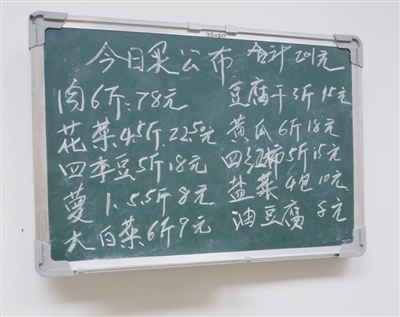 今日采公布 合计201元
肉6斤:78元 豆腐干3斤15元
花菜4.5斤22.50元 黄瓜6斤18元
四季豆5斤18元 四红柿5斤15元
蔓1.5.5斤8元 盐菜4包10元
大白菜6斤9元 油豆腐 8元